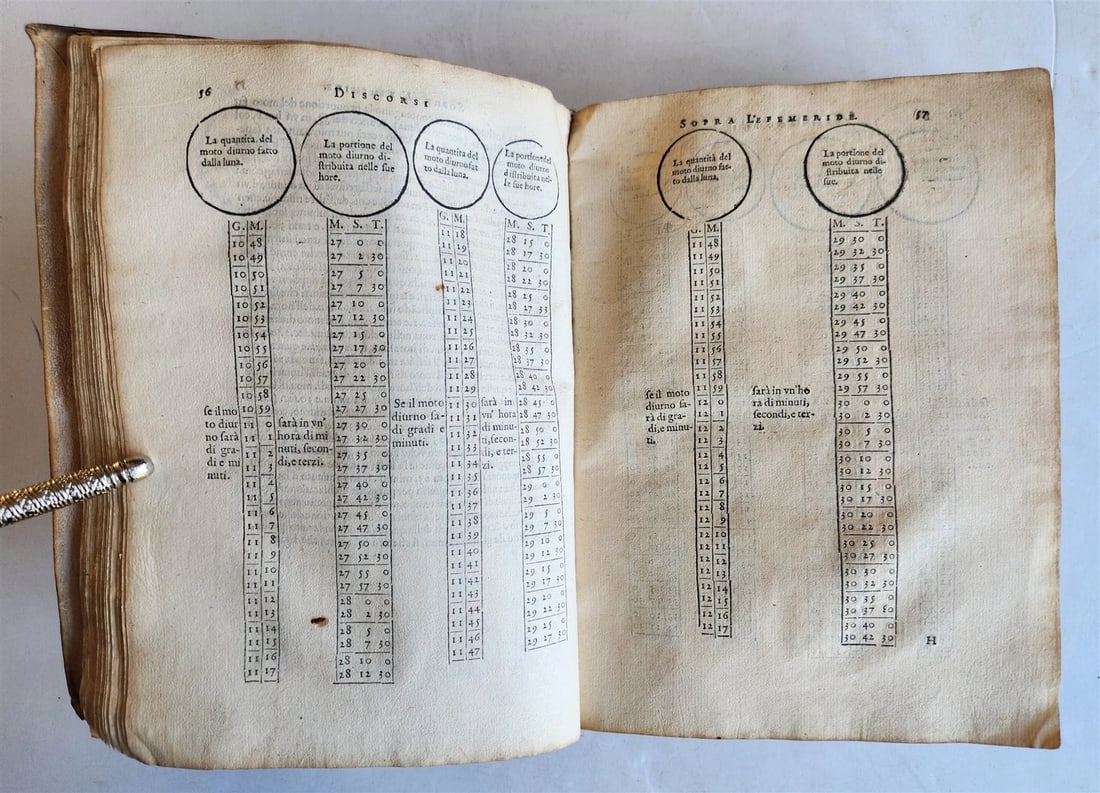 56 DISCORSI
La quantita del
moto diurno fatto
dalla luna.
La portione del
moto diurno di-
ſtribuita nelle ſue
hore.
La quantita del
moto diurno fat
to dalla luna.
La portione del
moto diurno
diſtribuita nel-
le ſue hore.
G. M. M. S. T.
10 48 27 0 0
10 49 27 2 30
10 50 27 5 0
10 51 27 7 30
10 52 27 10 0
10 53 27 12 30
10 54 27 15 0
10 55 27 17 30
10 56 27 20 0
10 57 27 22 30
10 58 27 25 0
10 59 27 27 30
11 0 27 30 0
11 1 27 32 30
11 2 27 35 0
11 3 27 37 30
11 4 27 40 0
11 5 27 42 30
11 6 27 45 0
11 7 27 47 30
11 8 27 50 0
11 9 27 52 30
11 10 27 55 0
11 11 27 57 30
11 12 28 0 0
11 13 28 2 30
11 14 28 5 0
11 15 28 7 30
11 16 28 10 0
11 17 28 12 30
ſe il mo
to diur
no ſarà
di gra-
di e mi
nuti.
ſarà in vn'
hora di mi
nuti, ſecon-
di, e terzi.
G. M. M. S. T.
11 18 28 15 0
11 19 28 17 30
11 20 28 20 0
11 21 28 22 30
11 22 28 25 0
11 23 28 27 33
11 24 28 30 0
11 25 28 32 30
11 26 28 35 0
11 27 28 37 30
11 28 28 40 0
11 29 28 42 30
11 30 28 45 0
11 31 28 47 30
11 32 28 50 0
11 33 28 52 30
11 34 28 55 0
11 35 28 57 30
11 36 29 0 0
11 37 29 2 30
11 38 29 5 0
11 39 29 7 30
11 40 29 10 0
11 41 29 12 30
11 42 29 15 0
11 43 29 17 30
11 44 29 20 0
11 45 29 22 30
11 46 29 25 0
11 47 29 27 30
Se il moto
diurno ſa-
di gradi e
minuti.
ſarà in
vn' hora
di minu-
ti, ſecon-
di, e ter-
zi.
SOPRA L'EFEMERIDE. 57
La quantità del
moto diurno fat-
to dalla luna.
La portione del
moto diurno di-
ſtribuita nelle
ſue.
G. M. M. S. T.
11 48 29 30 0
11 49 29 32 30
11 50 29 35 0
11 51 29 37 30
11 52 29 40 0
11 53 29 42 30
11 54 29 45 0
11 55 29 47 30
11 56 29 50 0
11 57 29 52 30
11 58 29 55 0
11 59 29 57 30
12 0 30 0 0
12 1 30 2 30
12 2 30 5 0
12 3 30 7 30
12 4 30 10 0
12 5 30 12 30
12 6 30 15 0
12 7 30 17 30
12 8 30 20 0
12 9 30 22 30
12 10 30 25 0
12 11 30 27 30
12 12 30 30 0
12 13 30 32 30
12 14 30 35 0
12 15 30 37 80
12 16 30 40 0
12 17 30 42 30
ſe il moto
diurno ſa-
rà di gra-
di, e minu-
ti.
ſarà in vn'ho
rà di minuti,
ſecondi, e ter-
zi.
H